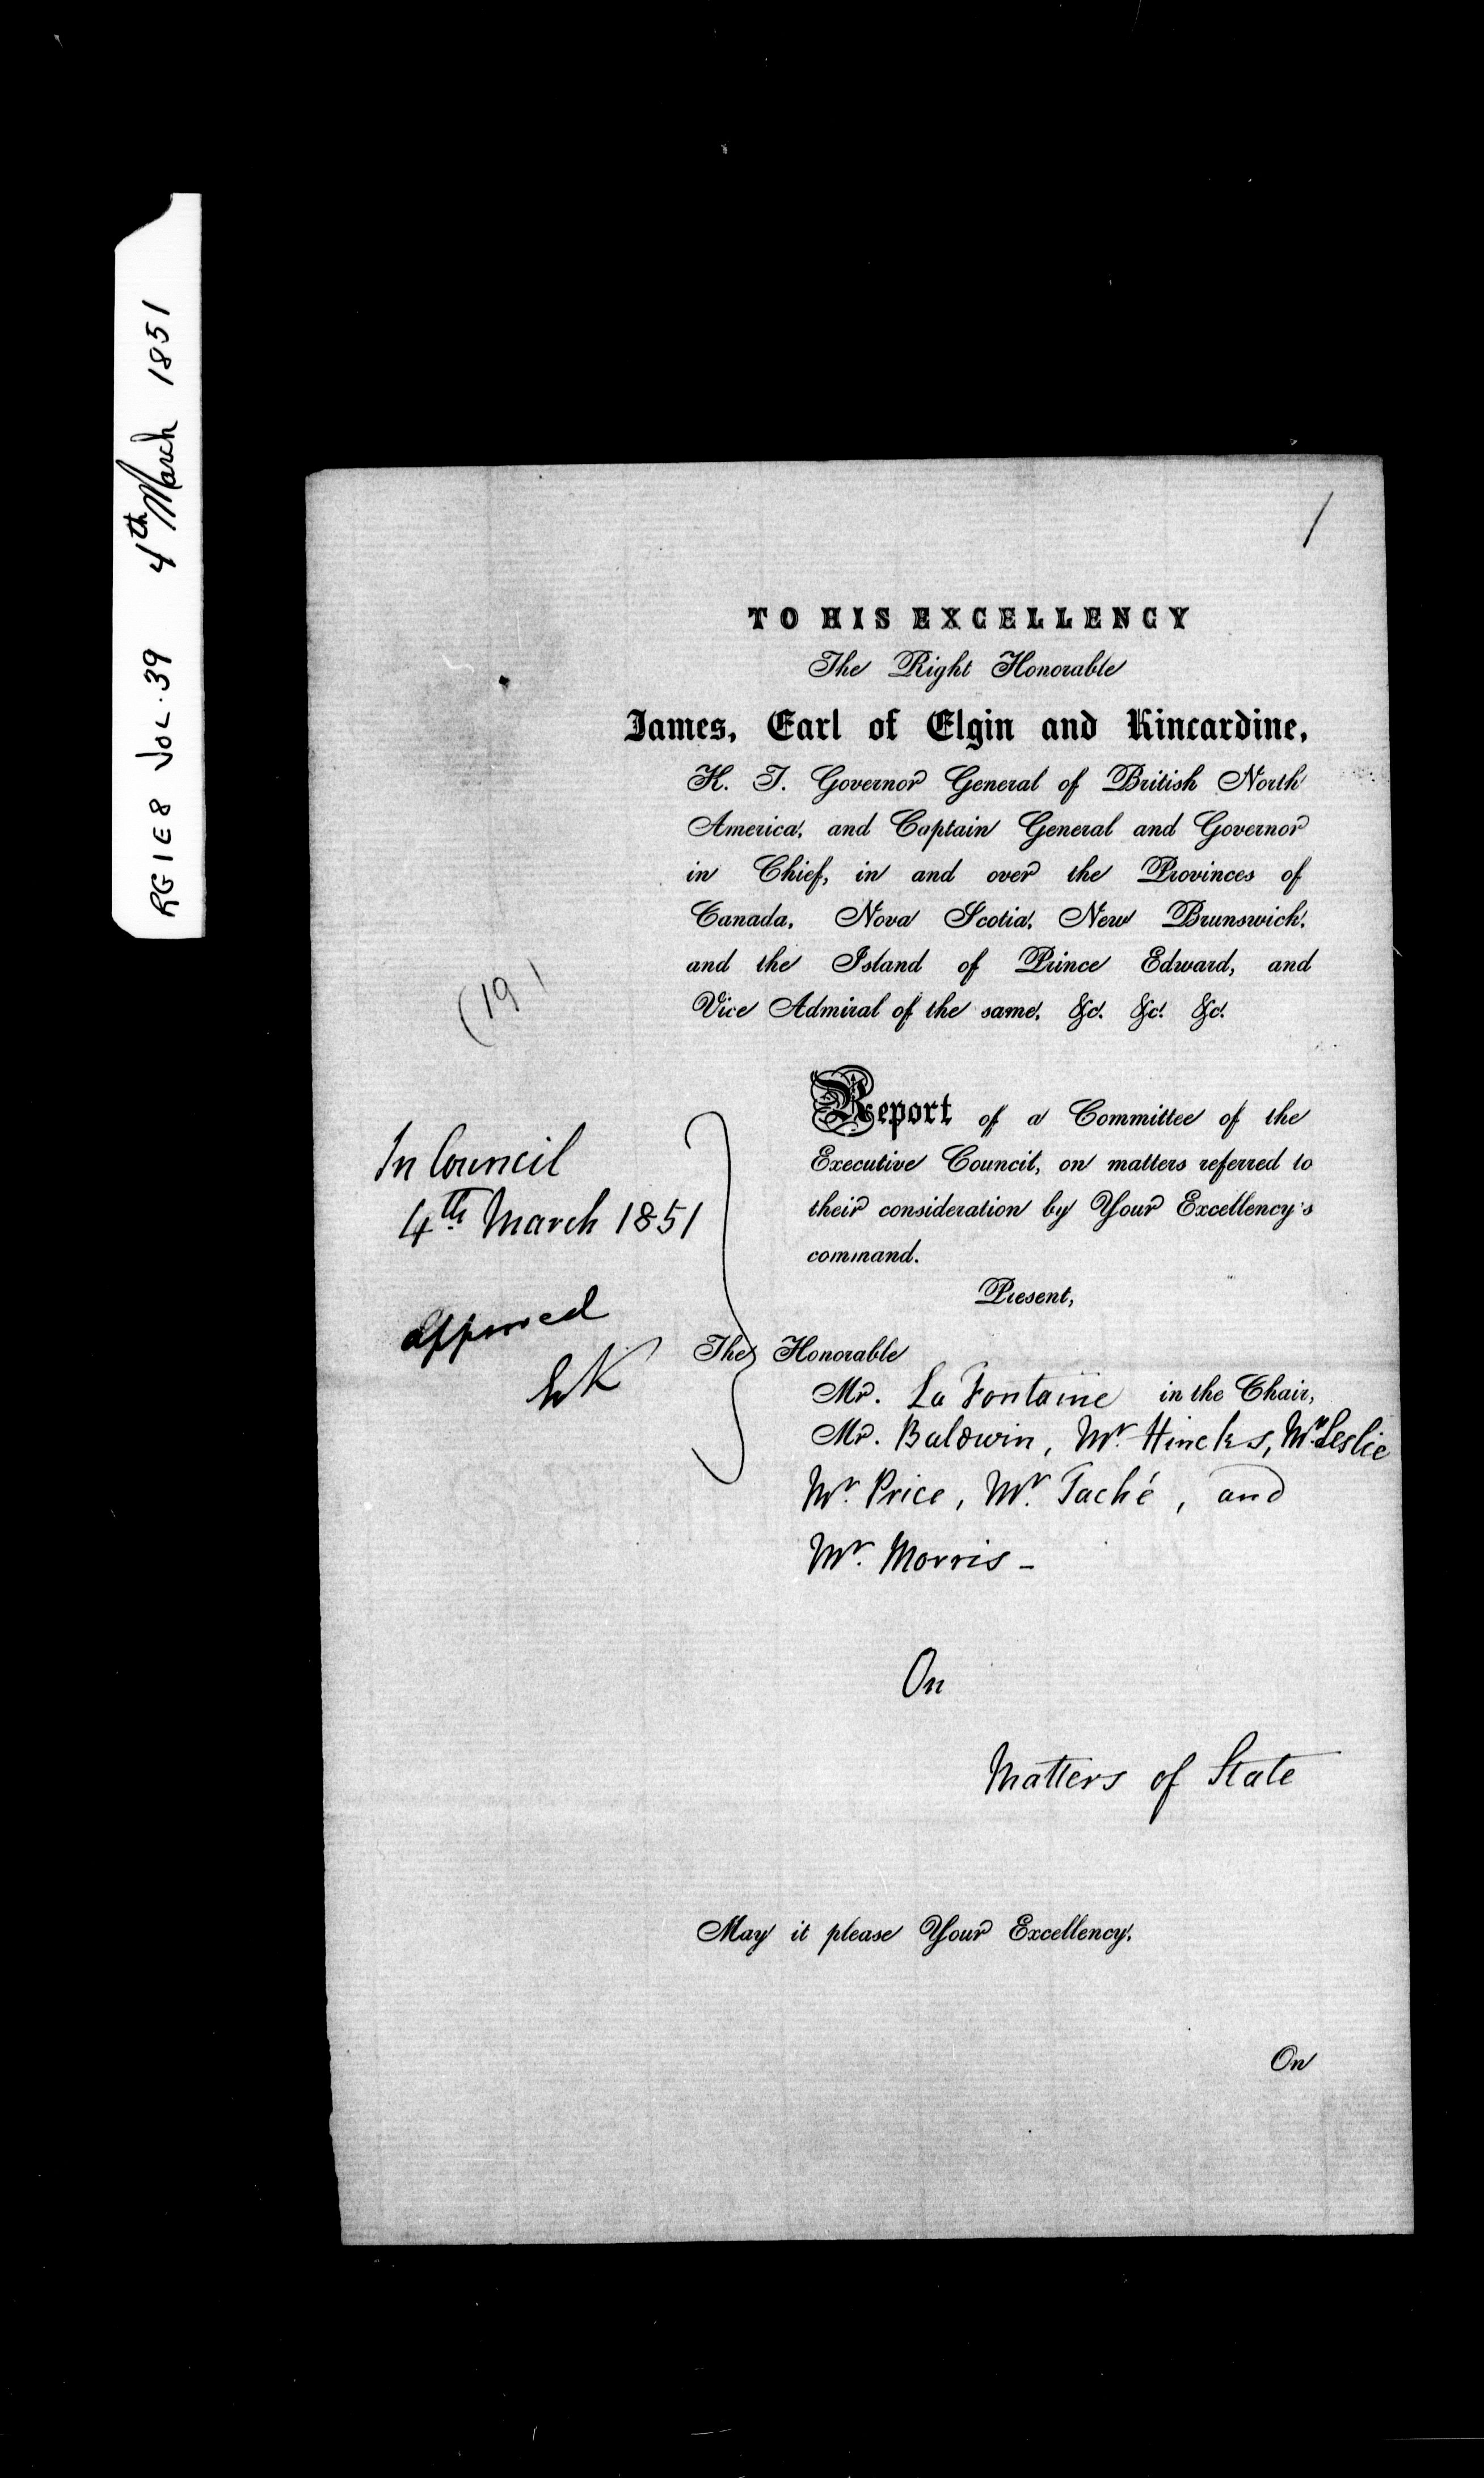 RG 1 E 8 VOL. 39 4th March 1851
1
TO HIS EXCELLENCY
The Right Honorable
James, Earl of Elgin and Kincardine,
K. T. Governor General of British North
America, and Captain General and Governor
in Chief, in and over the Provinces of
Canada, Nova Scotia, New Brunswick,
and the Island of Prince Edward, and
Vice Admiral of the same, &c. &c. &c.
(19)
Report of a Committee of the
Executive Council, on matters referred to
their consideration by Your Excellency's
command.
In Council
4th March 1851
Approved
EK
Present,
The Honorable
Mr. La Fontaine in the Chair,
Mr. Baldwin, Mr. Hincks, Mr. Leslie
Mr. Price, Mr. Taché, and
Mr. Morris -
On
Matters of State
May it please Your Excellency,
On